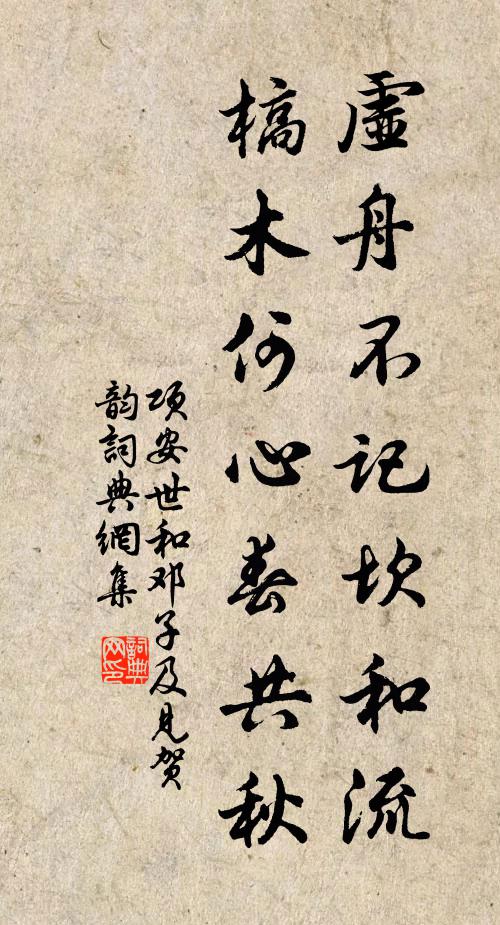 虛舟不记坎和流
槁木何心春共秋
项安世和邓子及見贺
韵詞典網集
詞典網印